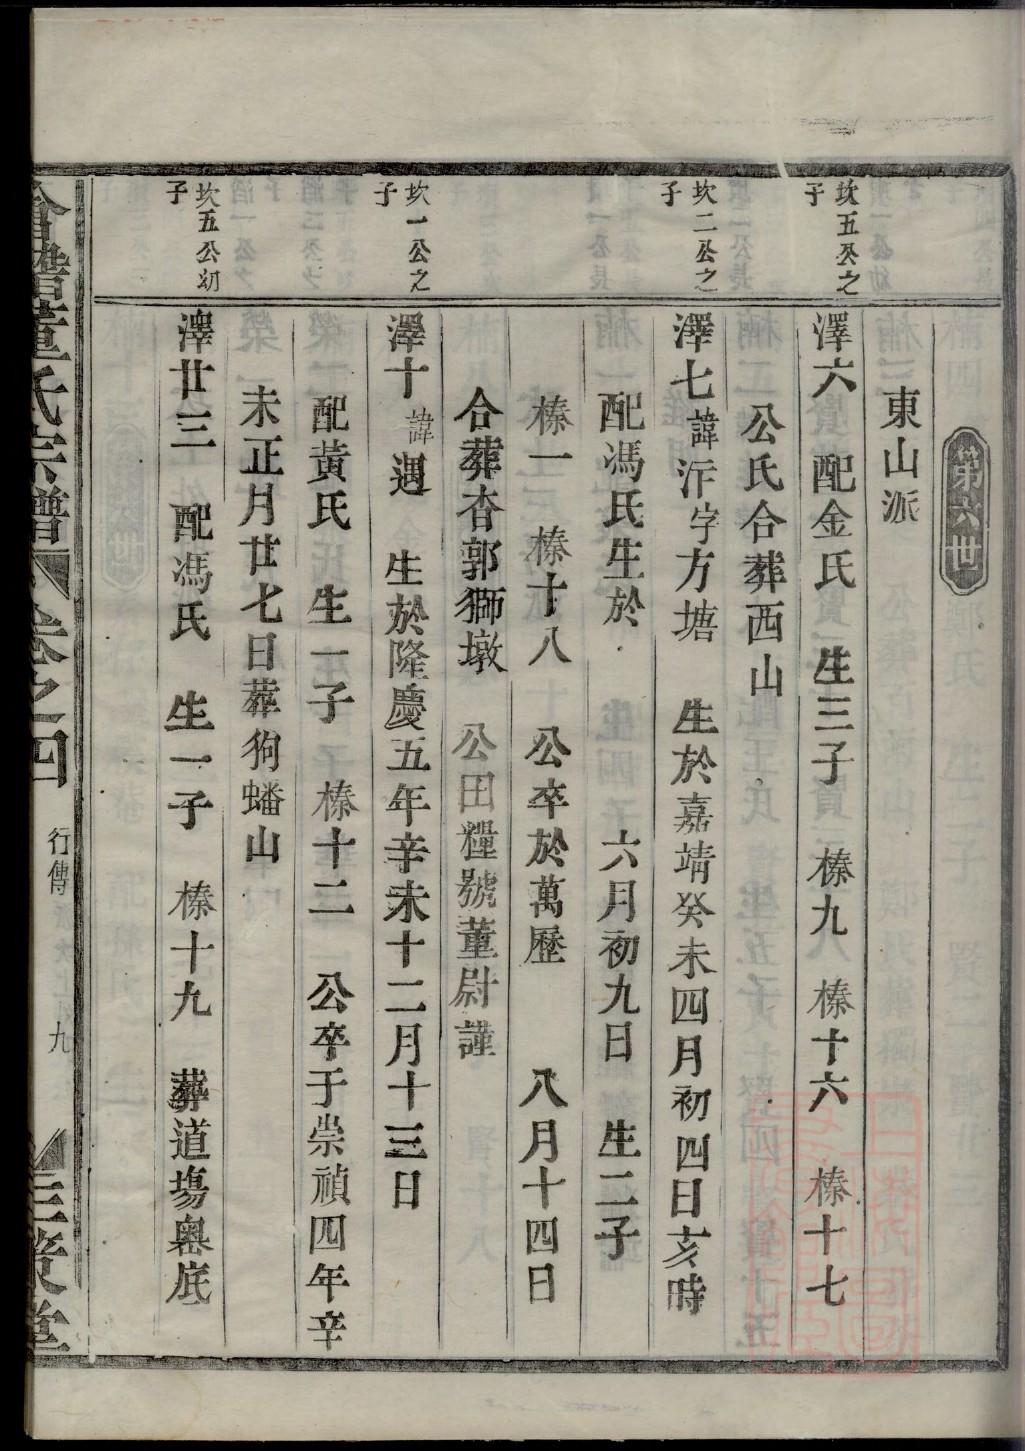 第六世
東山派
坎五公之子
澤六　配金氏　生三子　榛九　榛十六　榛十七
公氏合葬西山
坎二公之子
澤七諱泎字方塘　生於嘉靖癸未四月初四日亥時
配馮氏生於　六月初九日　生二子
榛一　榛十八　公卒於萬歷　八月十四日
合葬杳郭獅墩　公田糧號董尉謹
坎一公之子
澤十諱遇　生於隆慶五年辛未十二月十三日
配黃氏　生一子　榛十二　公卒于崇禎四年辛
未正月廿七日葬狗蟠山
坎五公幼子
澤廿三　配馮氏　生一子　榛十九　葬道塲奧底
會稽董氏宗譜　卷之四　行傳　九　三策堂